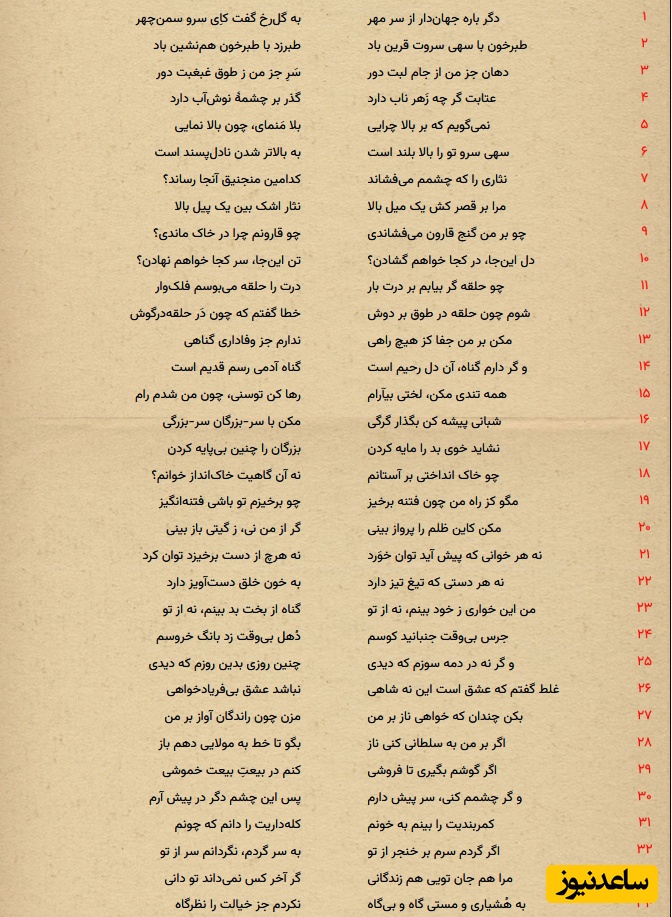 ۱ دگر باره جهان‌دار از سر مهر به گل‌رخ گفت کای سرو سمن‌چهر
۲ طبرخون با سهی سروت قرین باد طبرزد با طبرخون هم‌نشین باد
۳ دهان جز من از جام لبت دور سَرِ جز من ز طوق غبغبت دور
۴ عتابت گر چه زَهر ناب دارد گذر بر چشمهٔ نوش‌آب دارد
۵ نمی‌گویم که بر بالا چرایی بلا مَنمای، چون بالا نمایی
۶ سهی سرو تو را بالا بلند است به بالاتر شدن نادل‌پسند است
۷ نثاری را که چشمم می‌فشاند کدامین منجنیق آنجا رساند؟
۸ مرا بر قصر کش یک میل بالا نثار اشک بین یک پیل بالا
۹ چو بر من گنج قارون می‌فشاندی چو قارونم چرا در خاک ماندی؟
۱۰ دل این‌جا، در کجا خواهم گشادن؟ تن این‌جا، سر کجا خواهم نهادن؟
۱۱ چو حلقه گر بیابم بر درت بار درت را حلقه می‌بوسم فلک‌وار
۱۲ شوم چون حلقه در طوق بر دوش خطا گفتم که چون دَر حلقه‌درگوش
۱۳ مکن بر من جفا کز هیچ راهی ندارم جز وفاداری گناهی
۱۴ و گر دارم گناه، آن دل رحیم است گناه آدمی رسم قدیم است
۱۵ همه تندی مکن، لختی بیآرام رها کن توسنی، چون من شدم رام
۱۶ شبانی پیشه کن بگذار گرگی مکن با سر-بزرگان سر-بزرگی
۱۷ نشاید خوی بد را مایه کردن بزرگان را چنین بی‌پایه کردن
۱۸ چو خاک انداختی بر آستانم نه آن گاهیت خاک‌انداز خوانم؟
۱۹ مگو کز راه من چون فتنه برخیز چو برخیزم تو باشی فتنه‌انگیز
۲۰ مکن کاین ظلم را پرواز بینی گر از من نی، ز گیتی باز بینی
۲۱ نه هر خوانی که پیش آید توان خوَرد نه هرچ از دست برخیزد توان کرد
۲۲ نه هر دستی که تیغ تیز دارد به خون خلق دست‌آویز دارد
۲۳ من این خواری ز خود بینم، نه از تو گناه از بخت بد بینم، نه از تو
۲۴ جرس بی‌وقت جنبانید کوسم دُهل بی‌وقت زد بانگ خروسم
۲۵ و گر نه در دمه سوزم که دیدی چنین روزی بدین روزم که دیدی
۲۶ غلط گفتم که عشق است این نه شاهی نباشد عشق بی‌فریادخواهی
۲۷ بکن چندان که خواهی ناز بر من مزن چون راندگان آواز بر من
۲۸ اگر بر من به سلطانی کنی ناز بگو تا خط به مولایی دهم باز
۲۹ اگر گوشم بگیری تا فروشی کنم در بیعتِ بیعت خموشی
۳۰ و گر چشمم کنی، سر پیش دارم پس این چشم دگر در پیش آرم
۳۱ کمربندیت را بینم به خونم کله‌داریت را دانم که چونم
۳۲ اگر گردم سرم بر خنجر از تو به سر گردم، نگردانم سر از تو
مرا هم جان تویی هم زندگانی گر آخر کس نمی‌داند تو دانی
به هُشیاری و مستی گاه و بی‌گاه نکردم جز خیالت را نظرگاه
ساعدنیوز